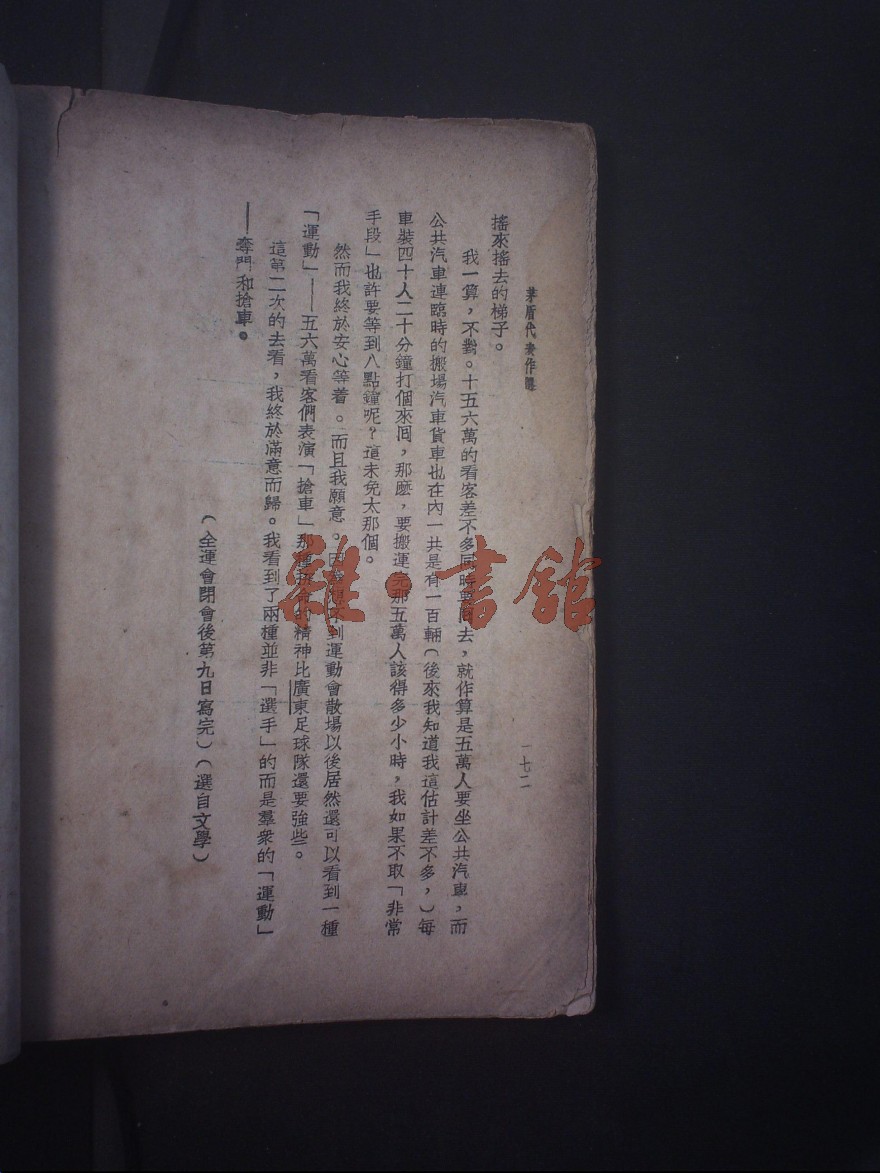 茅盾代表作選
一七二
搖來搖去的梯子。
我一算，不對。十五六萬的看客差不多同時要回去，就作算是五萬人要坐公共汽車，而
公共汽車連臨時的搬場汽車貨車也在內一共是有一百輛（後來我知道我這估計差不多，）每
車裝四十人二十分鐘打個來回，那麽，要搬運完那五萬人該得多少小時，我如果不取「非常
手段」也許要等到八點鐘呢？這未免太那個。
然而我終於安心等着。而且我願意。因到運動會散場以後居然還可以看到一種
「運動」——五六萬看客們表演「搶車」那種拚命的精神比廣東足球隊還要強些。
這第二次的去看，我終於滿意而歸。我看到了兩種並非「選手」的而是羣衆的「運動」
——奪門和搶車。
（全運會閉會後第九日寫完）（選自文學）
雜·書館